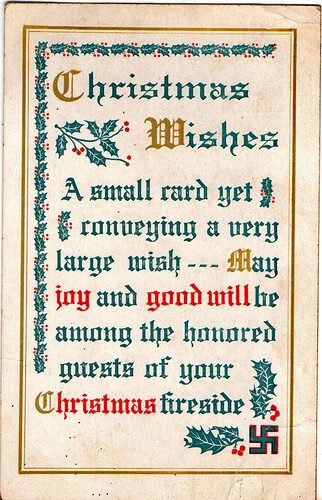 Christmas
Wishes
A small card yet
conveying a very
large wish --- May
joy and good will be
among the honored
guests of your
Christmas fireside